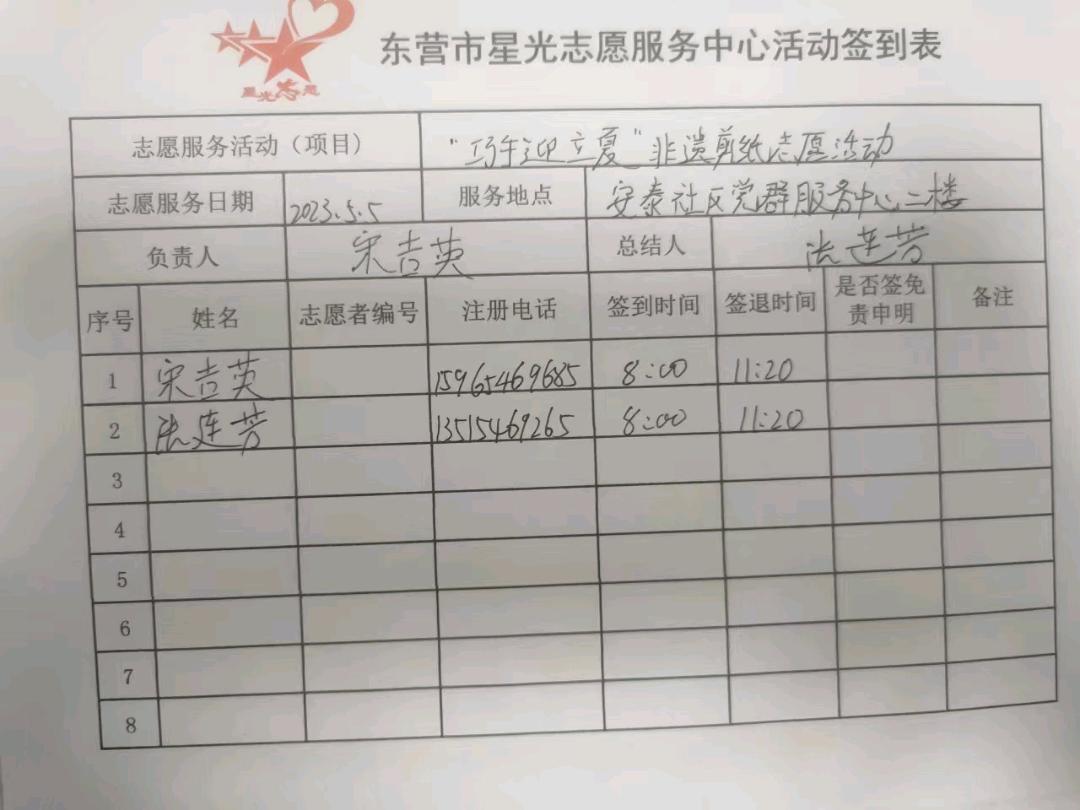 星光志愿
东营市星光志愿服务中心活动签到表
志愿服务活动（项目） “巧手迎立夏”非遗剪纸志愿活动
志愿服务日期 2023.5.5 服务地点 安泰社区党群服务中心二楼
负责人 宋吉英 总结人 张莲芳
序号 姓名 志愿者编号 注册电话 签到时间 签退时间 是否签免责申明 备注
1 宋吉英 15965469685 8:00 11:20
2 张莲芳 13515469265 8:00 11:20
3
4
5
6
7
8